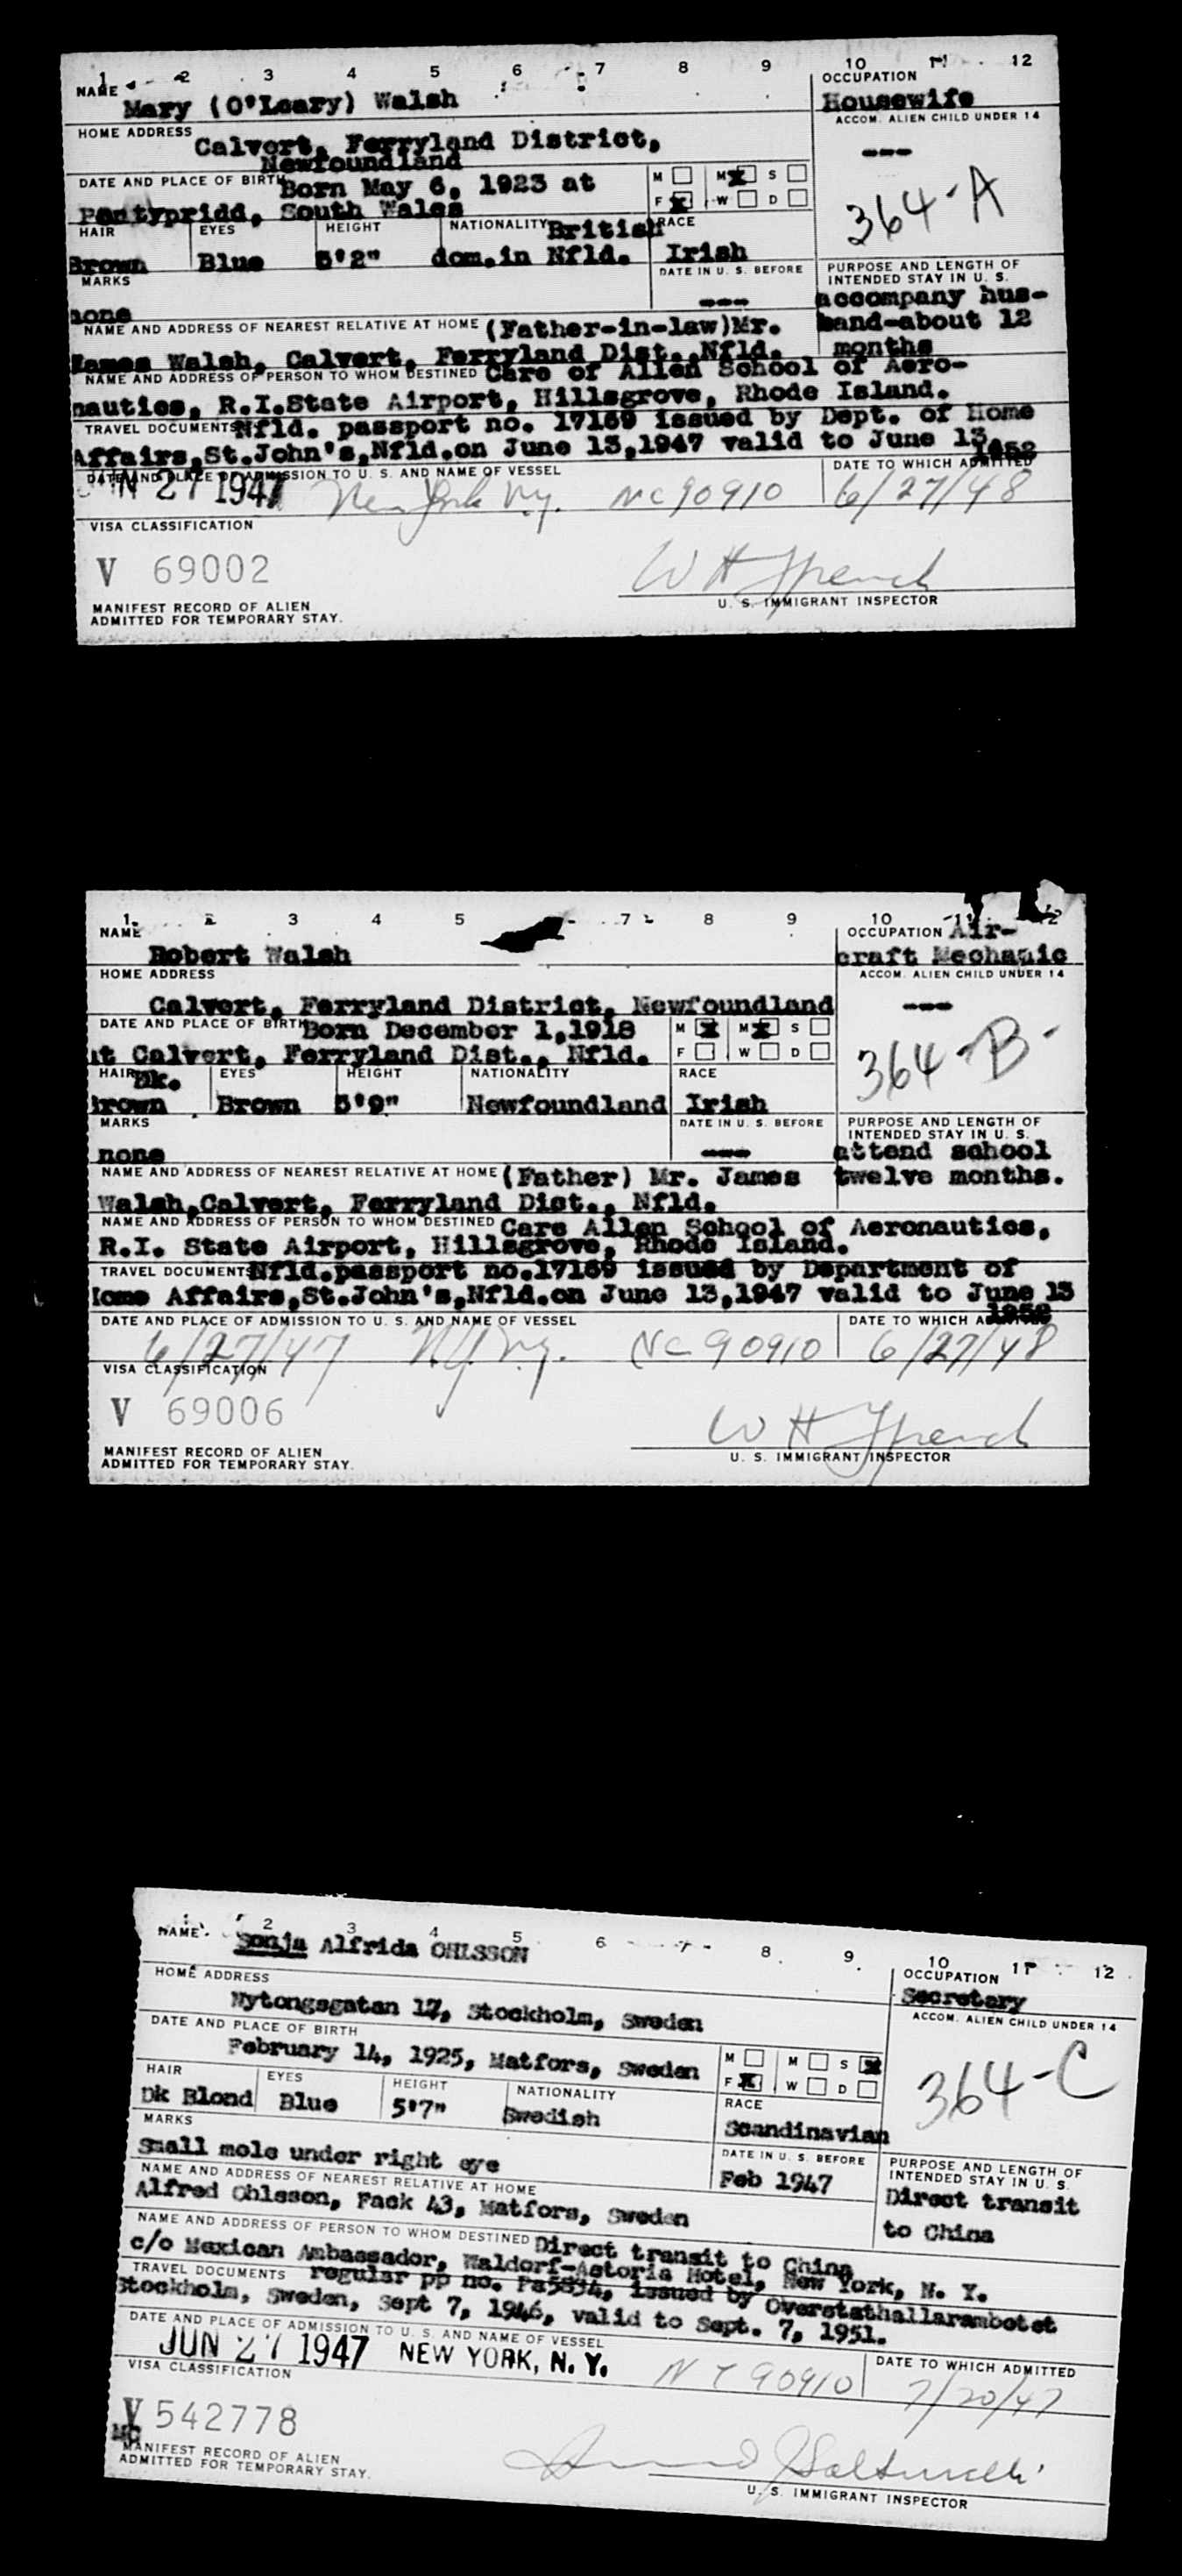 1 2 3 4 5 6 7 8 9 10 11 12
NAME
Mary (O'Leary) Walsh
OCCUPATION
Housewife
HOME ADDRESS
Calvert, Ferryland District,
Newfoundland
ACCOM. ALIEN CHILD UNDER 14
---
DATE AND PLACE OF BIRTH Born May 6, 1923 at
Pontypridd, South Wales
M M X S
F X W D
364-A
HAIR EYES HEIGHT NATIONALITY British RACE
Brown Blue 5'2" dom.in Nfld. Irish
MARKS
none
DATE IN U. S. BEFORE
---
PURPOSE AND LENGTH OF
INTENDED STAY IN U. S.
accompany hus-
band-about 12
months
NAME AND ADDRESS OF NEAREST RELATIVE AT HOME (Father-in-law)Mr.
James Walsh, Calvert, Ferryland Dist.,Nfld.
NAME AND ADDRESS OF PERSON TO WHOM DESTINED Care of Allen School of Aero-
nautics, R.I.State Airport, Hillsgrove, Rhode Island.
TRAVEL DOCUMENTS Nfld. passport no. 17169 issued by Dept. of Home
Affairs,St.John's,Nfld.on June 13,1947 valid to June 13,
1952
DATE AND PLACE OF ADMISSION TO U. S. AND NAME OF VESSEL DATE TO WHICH ADMITTED
JUN 27 1947 New York N.Y. NC90910 6/27/48
VISA CLASSIFICATION
V 69002
W H French
MANIFEST RECORD OF ALIEN
ADMITTED FOR TEMPORARY STAY.
U. S. IMMIGRANT INSPECTOR
1 2 3 4 5 7 8 9 10 11 12
NAME
Robert Walsh
OCCUPATION Air-
craft Mechanic
HOME ADDRESS
Calvert, Ferryland District, Newfoundland
ACCOM. ALIEN CHILD UNDER 14
---
DATE AND PLACE OF BIRTH Born December 1,1918
at Calvert, Ferryland Dist., Nfld.
M X M X S
F W D
364-B
HAIR Dk. EYES HEIGHT NATIONALITY RACE
Brown Brown 5'9" Newfoundland Irish
MARKS
none
DATE IN U. S. BEFORE
---
PURPOSE AND LENGTH OF
INTENDED STAY IN U. S.
attend school
twelve months.
NAME AND ADDRESS OF NEAREST RELATIVE AT HOME (Father) Mr. James
Walsh,Calvert, Ferryland Dist., Nfld.
NAME AND ADDRESS OF PERSON TO WHOM DESTINED Care Allen School of Aeronautics,
R.I. State Airport, Hillsgrove, Rhode Island.
TRAVEL DOCUMENTS Nfld.passport no.17169 issued by Department of
Home Affairs,St.John's,Nfld.on June 13,1947 valid to June 13
1952
DATE AND PLACE OF ADMISSION TO U. S. AND NAME OF VESSEL DATE TO WHICH ADMITTED
6/27/47 N.Y. N.Y. NC 90910 6/27/48
VISA CLASSIFICATION
V 69006
W H French
MANIFEST RECORD OF ALIEN
ADMITTED FOR TEMPORARY STAY.
U. S. IMMIGRANT INSPECTOR
1 2 3 4 5 6 7 8 9 10 11 12
NAME
Sonja Alfrida OHLSSON
OCCUPATION
Secretary
HOME ADDRESS
Nytongsgatan 17, Stockholm, Sweden
ACCOM. ALIEN CHILD UNDER 14
DATE AND PLACE OF BIRTH
February 14, 1925, Matfors, Sweden
M M S X
F X W D
364-C
HAIR EYES HEIGHT NATIONALITY RACE
Dk Blond Blue 5'7" Swedish Scandinavian
MARKS
Small mole under right eye
DATE IN U. S. BEFORE
Feb 1947
PURPOSE AND LENGTH OF
INTENDED STAY IN U. S.
Direct transit
to China
NAME AND ADDRESS OF NEAREST RELATIVE AT HOME
Alfred Ohlsson, Fack 43, Matfors, Sweden
NAME AND ADDRESS OF PERSON TO WHOM DESTINED Direct transit to China
c/o Mexican Ambassador, Waldorf-Astoria Hotel, New York, N. Y.
TRAVEL DOCUMENTS regular pp no. issued by Overstathallarambetet
Stockholm, Sweden, Sept 7, 1946, valid to Sept. 7, 1951.
DATE AND PLACE OF ADMISSION TO U. S. AND NAME OF VESSEL
JUN 27 1947 NEW YORK, N. Y. 90910
DATE TO WHICH ADMITTED
7/20/47
VISA CLASSIFICATION
V 542778
MANIFEST RECORD OF ALIEN
ADMITTED FOR TEMPORARY STAY.
U. S. IMMIGRANT INSPECTOR